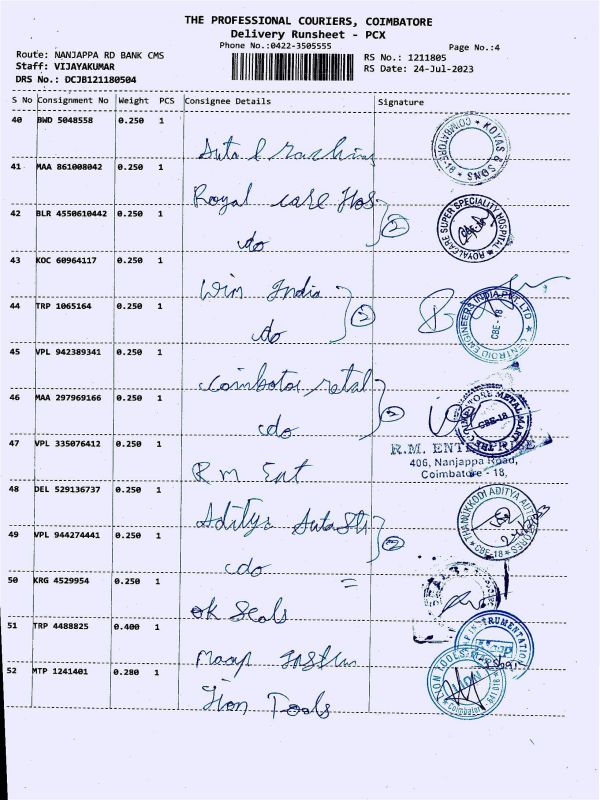 THE PROFESSIONAL COURIERS, COIMBATORE
Delivery Runsheet - PCX
Phone No.:0422-3505555
Page No.:4
Route: NANJAPPA RD BANK CMS
Staff: VIJAYAKUMAR
DRS No.: DCJB121180504
RS No.: 1211805
RS Date: 24-Jul-2023
S No Consignment No Weight PCS Consignee Details Signature
40 BWD 5048558 0.250 1
KOYAS & SONS COIMBATORE-18
41 MAA 861008042 0.250 1
Royal care Hos
42 BLR 4550610442 0.250 1
do 2
ROYALCARE SUPER SPECIALITY HOSPITAL
43 KOC 60964117 0.250 1
Win India
44 TRP 1065164 0.250 1
do 2
CENTROID ENGINEERS INDIA PVT LTD CBE-18
45 VPL 942389341 0.250 1
46 MAA 297969166 0.250 1
do 2
CBE-18
47 VPL 335076412 0.250 1
R M Ent
R.M. ENTERPRISE
406, Nanjappa Road,
Coimbatore - 18,
48 DEL 529136737 0.250 1
Aditya
49 VPL 944274441 0.250 1
do 2
THANUKKODI ADITYA CBE-18
50 KRG 4529954 0.250 1
ok Seals
51 TRP 4488825 0.400 1
INSTRUMENTATION
52 MTP 1241401 0.280 1
Lion Tools
LION TOOLS Coimbatore 641 018